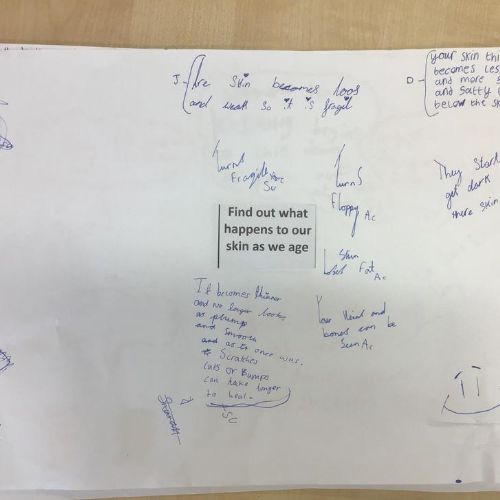 J - Are skin becomes loos
and weak so it is fragil
D - your skin thi
becomes les
and more s
and satty t
below the sk
turns
Fragile
Su
turns
Floppy Ac
They start
get dark
there skin
Find out what
happens to our
skin as we age
Skin
loses Fat Ac
It becomes thinner
and no longer looks
as plump
and smooth
and as it once was.
Scratches
cuts or Bumps
can take longer
to heal.
SC
Your veins and
bones can be
seen Ac